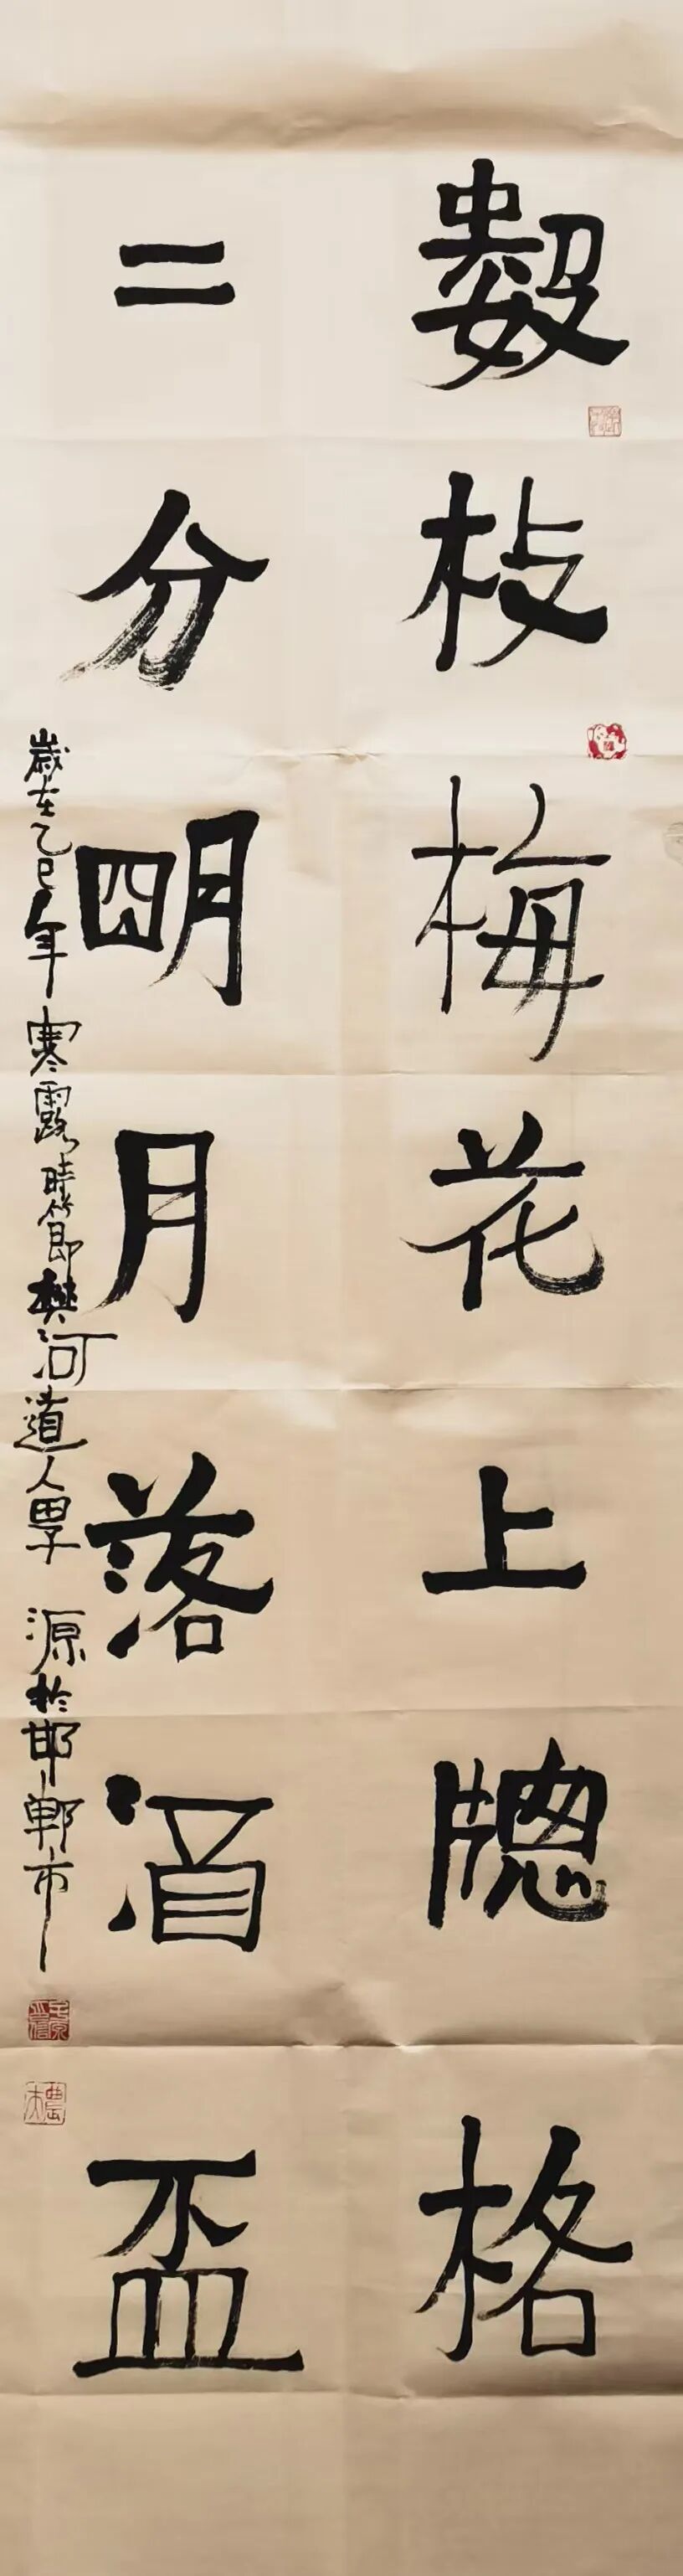 數枝梅花上牕格
二分朙月落酒盃
歲在乙巳年寒露時節樊河道人覃源於邯鄲市